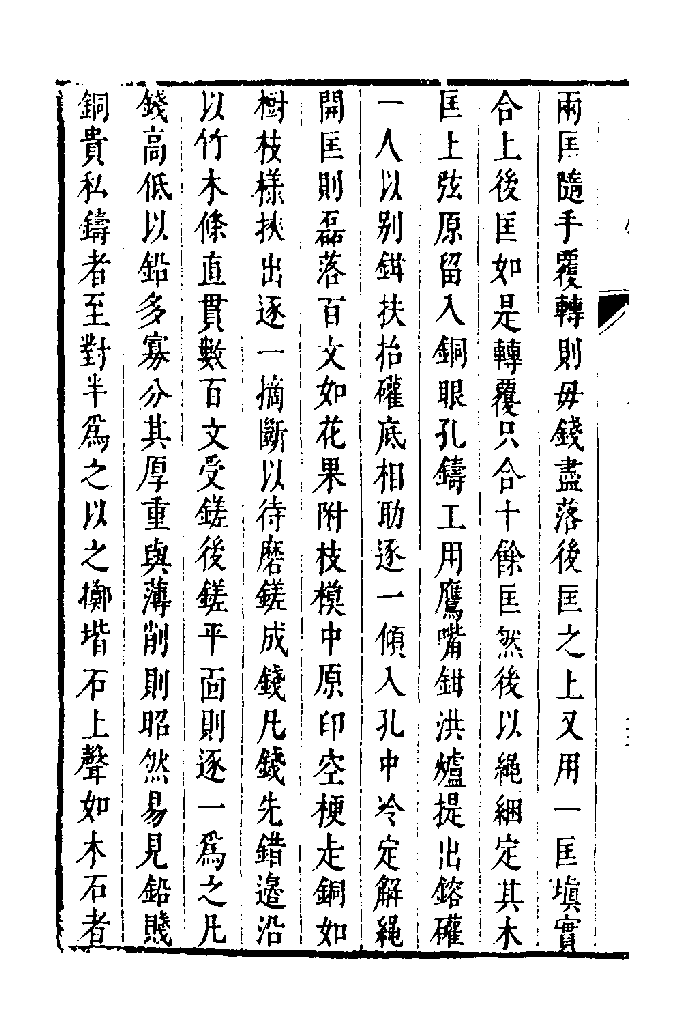 兩匡隨手覆轉則毋錢盡落後匡之上又用一匡塡實
合上後匡如是轉覆只合十餘匡然後以繩綑定其木
匡上弦原留入銅眼孔鑄工用鷹嘴鉗洪爐提出鎔礶
一人以别鉗扶抬礶底相助逐一傾入孔中冷定解繩
開匡則磊落百文如花果附枝模中原印空梗走銅如
樹枝樣挾出逐一摘斷以待磨鎈成錢凡錢先錯邉沿
以竹木條直貫數百文受鎈後鎈平面則逐一爲之凡
錢高低以鉛多寡分其厚重與薄削則昭然易見鉛賤
銅貴私鑄者至對半爲之以之擲堦石上聲如木石者